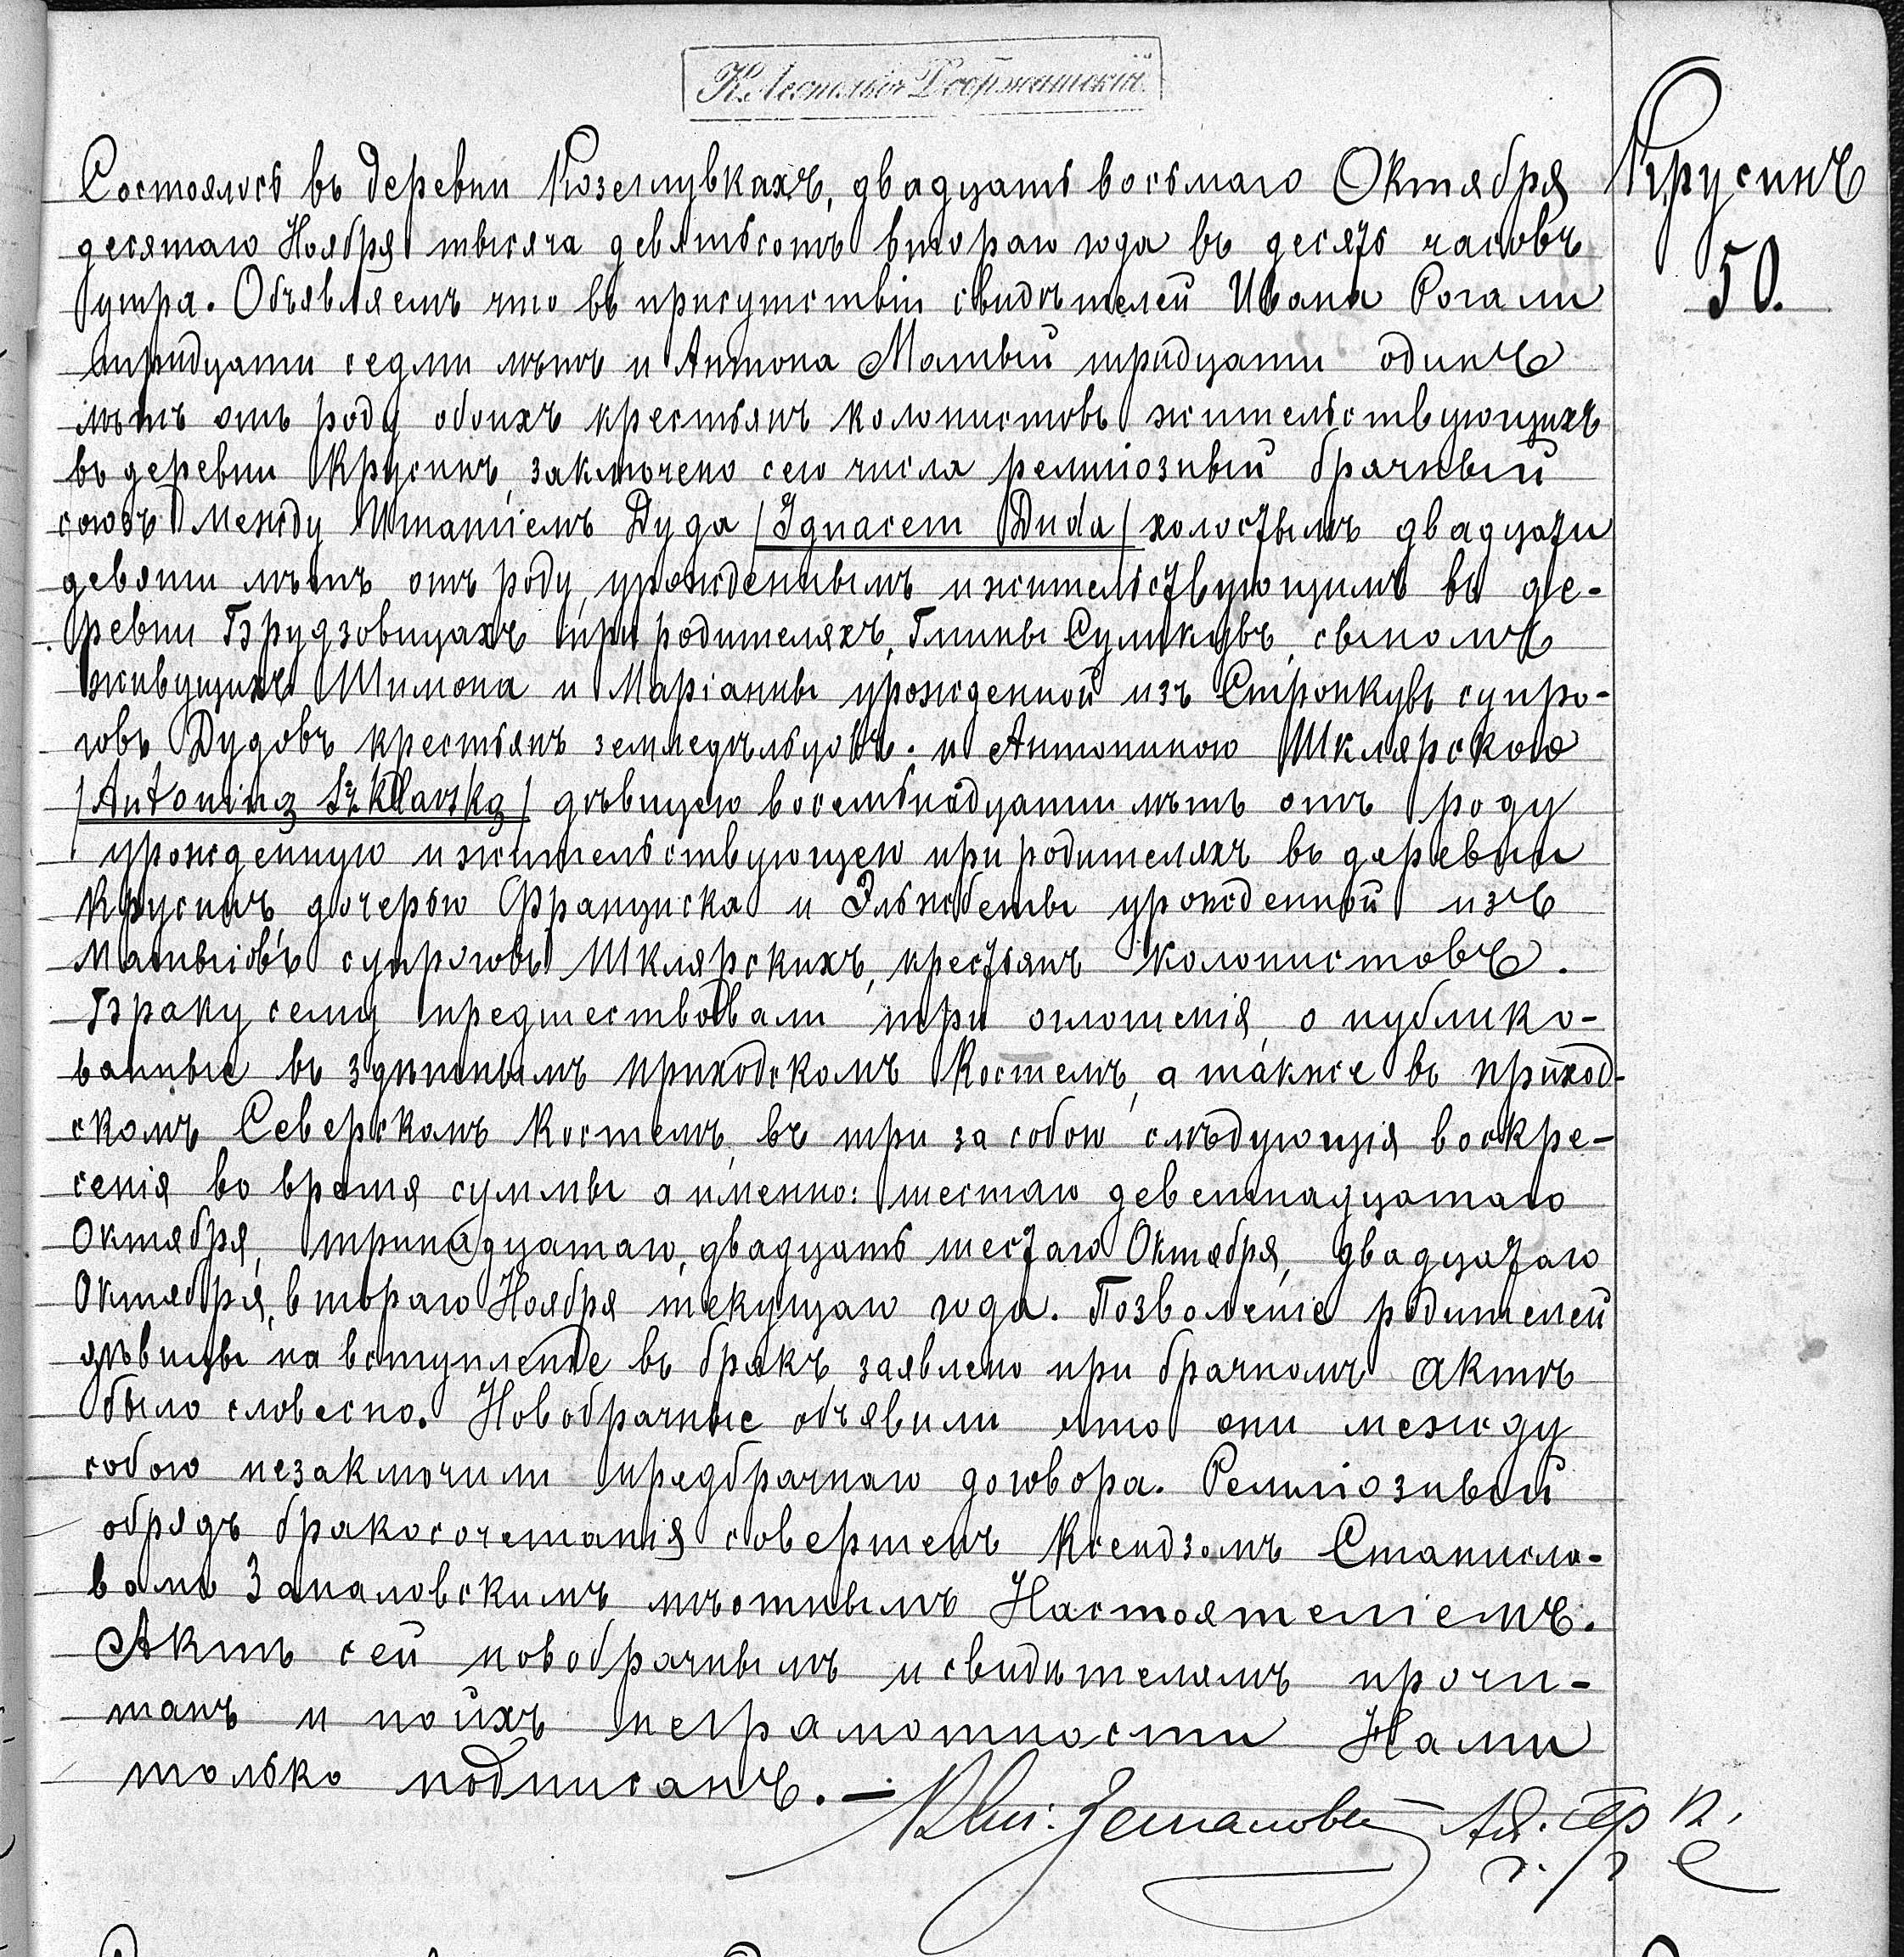 Состоялось въ деревни Коземлувкахъ, двадцать восьмаго Октября
десятаго Ноября тысяча девятьсотъ втораго года въ десять часовъ
утра. Объявляемъ что въ присутствіи свидѣтелей Ивана Рогали
тридцати седми лѣтъ и Антона Матыи тридцати одинъ
лѣтъ отъ роду обоихъ крестьянъ колонистовъ жительствующихъ
въ деревни Крусинъ, заключено сего числа религіозный брачный
союзъ между Игнатіемъ Дуда /Ignacem Duda/ холостымъ двадцати
девяти лѣтъ отъ роду, урожденнымъ и жительствующимъ въ де-
ревни Брудзовицахъ при родителяхъ, Гмины Суликувъ, сыномъ
живущихъ Шимона и Маріанны урожденной изъ Стронкувъ супро-
говъ Дудовъ крестьянъ земледѣльцовъ. и Антониною Шклярскою
/Antoniną Szklarską/ дѣвицею восемьнадцати лѣтъ отъ роду
урожденную и жительствующею при родителяхъ въ деревни
Крусинъ, дочерью Францишка и Эльжбеты урожденной изъ
Матыіовъ супруговъ Шклярскихъ, крестьянъ колонистовъ.
Браку сему предшествовали три оглошенія, о публико-
ванные въ здѣшнымъ приходскомъ Костелѣ, а также въ приход-
скомъ Северскомъ Костелѣ, въ три за собою слѣдующія воскре-
сенія во время суммы а именно: шестаго деветнадцатаго
Октября, тринадцатаго, двадцать шестаго Октября, двадцатаго
Октября, втораго Ноября текущаго года. Позволеніе родителей
дѣвицы на вступленіе въ бракъ заявлено при брачномъ актѣ
было словесно. Новобрачные объявили что они между
собою незаключили предбрачнаго договора. Религіозный
обрядъ бракосочетанія совершенъ Ксендзомъ Станисла-
вомъ Запаловскимъ мѣстнымъ Настоятеліемъ.
Актъ сей новобрачнымъ и свидѣтелямъ прочи-
танъ и по ихъ неграмотности Нами
только подписанъ. —
Крусинъ
50.